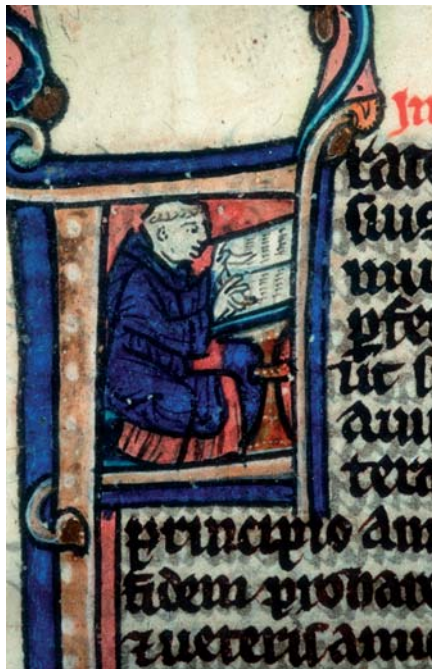 In
rate
sius
mu
ꝑfer
lit s
aui
tera
principio am
fidem probate
⁊ ueteris amic